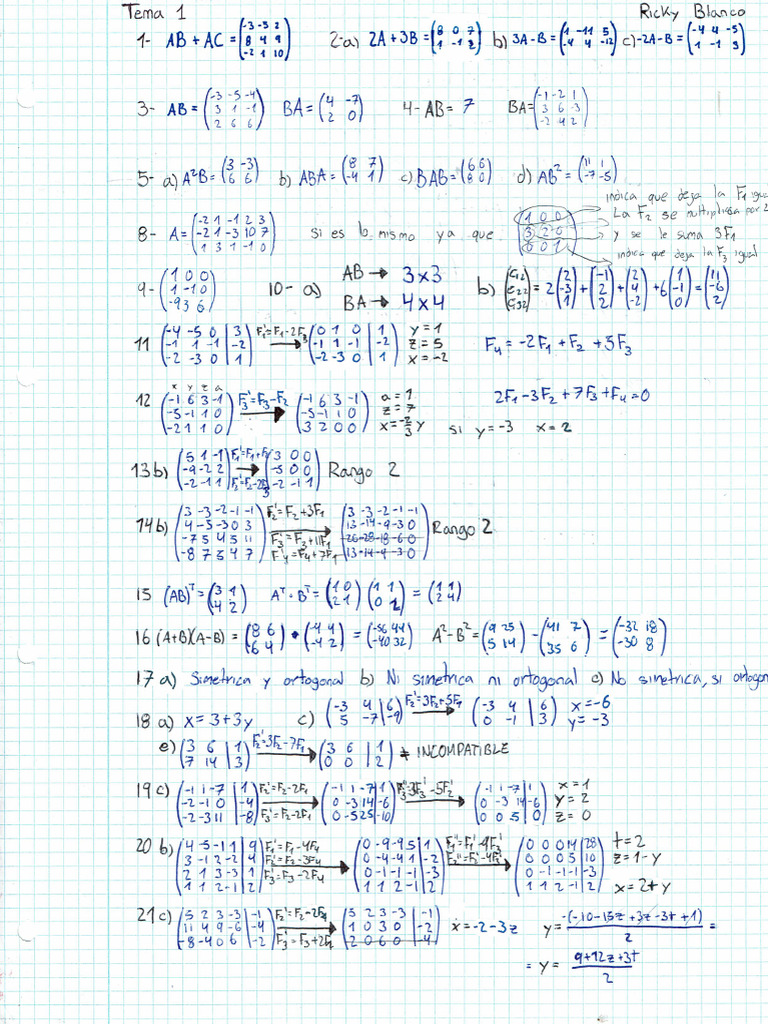 Tema 1 Ricky Blanco
1- AB + AC = (-3 -5 2 / 8 4 9 / -2 1 10) 2-a) 2A+3B = (8 0 7 / 1 -1 2) b) 3A-B = (1 -11 5 / -4 4 -12) c) -2A-B = (-4 4 -5 / 1 -1 3)
3- AB = (-3 -5 -4 / 3 1 -1 / 2 6 6) BA = (4 -7 / 2 0) 4- AB = 7 BA = (-1 -2 1 / 3 6 -3 / -2 4 2)
5- a) A²B = (3 -3 / 6 6) b) ABA = (8 7 / -4 1) c) BAB = (6 6 / 8 0) d) AB² = (11 1 / -7 -5)
indica que deja la F₁ igua
La F₂ se multiplica por 2
8- A = (-2 1 -1 2 3 / -2 1 -3 10 7 / 1 3 1 -1 0) si es lo mismo ya que (1 0 0 / 3 2 0 / 0 0 1) y se le suma 3F₁
indica que deja la F₃ igual
9- (1 0 0 / 1 -1 0 / -9 3 6) 10- a) AB → 3x3 BA → 4x4 b) (C₁₂ / C₂₂ / C₃₂) = 2(2 / -3 / 1) + (-1 / 2 / 2) + (2 / 4 / -2) + 6(1 / -1 / 0) = (11 / -6 / 2)
11 (-4 -5 0 | 3 / -1 1 -1 | -2 / -2 -3 0 | 1) F₁'=F₁-2F₃ → (0 1 0 | 1 / -1 1 -1 | -2 / -2 -3 0 | 1) y=1 z=5 x=-2 F₄ = -2F₁+F₂+3F₃
x y z a
12 (-1 6 3 -1 / -5 -1 1 0 / -2 1 1 0) F₃'=F₃-F₂ → (-1 6 3 -1 / -5 -1 1 0 / 3 2 0 0) a=1 z=7 x=-2/3 y si y=-3 x=2 2F₁-3F₂+7F₃+F₄=0
13b) (5 1 -1 / -9 -2 2 / -2 -1 1) F₁'=F₁+F₃ F₂'=F₂-2F₃ → (3 0 0 / -5 0 0 / -2 -1 1) Rango 2
14b) (3 -3 -2 -1 -1 / 4 -5 -3 0 3 / -7 5 4 5 11 / -8 7 5 4 7) F₂'=F₂+3F₁ F₃'=F₃+11F₁ F'₄=F₄+7F₁ → (3 -3 -2 -1 -1 / 13 -14 -9 -3 0 / 26 -28 -18 -6 0 / 13 -14 -9 -3 0) Rango 2
15 (AB)ᵀ = (3 1 / 4 2) Aᵀ·Bᵀ = (1 0 / 2 1) (1 1 / 0 2) = (1 1 / 2 4)
16 (A+B)(A-B) = (8 6 / -6 4) · (-4 4 / -4 2) = (-56 44 / -40 32) A²-B² = (9 25 / 5 14) - (41 7 / 35 6) = (-32 18 / -30 8)
17 a) Simetrica y ortogonal b) Ni simetrica ni ortogonal c) No simetrica, si ortogon
18 a) x = 3+3y c) (-3 4 | 6 / 5 -7 | -9) F₂'=3F₂+5F₁ → (-3 4 | 6 / 0 -1 | 3) x=-6 y=-3
e) (3 6 | 1 / 7 14 | 3) F₂'=3F₂-7F₁ → (3 6 | 1 / 0 0 | 2) ≠ INCOMPATIBLE
19 c) (-1 1 -7 | 1 / -2 -1 0 | -4 / -2 -3 11 | -8) F₂'=F₂-2F₁ F₃'=F₃-2F₁ → (-1 1 -7 | 1 / 0 -3 14 | -6 / 0 -5 25 | -10) F₃''=3F₃'-5F₂' → (-1 1 -7 | 1 / 0 -3 14 | -6 / 0 0 5 | 0) x=1 y=2 z=0
20 b) (4 -5 -1 1 | 9 / 3 -1 -2 -2 | 4 / 2 1 3 -3 | 1 / 1 1 2 -1 | 2) F₁'=F₁-4F₄ F₂'=F₂-3F₄ F₃'=F₃-2F₄ → (0 -9 -9 5 | 1 / 0 -4 -4 1 | -2 / 0 -1 -1 -1 | -3 / 1 1 2 -1 | 2) F₁''=F₁'-9F₃' F₂''=F₂'-4F₃' → (0 0 0 14 | 28 / 0 0 0 5 | 10 / 0 -1 -1 -1 | -3 / 1 1 2 -1 | 2) t=2 z=1-y x=2+y
21 c) (5 2 3 -3 | -1 / 11 4 9 -6 | -4 / -8 -4 0 6 | -2) F₂'=F₂-2F₁ F₃'=F₃+2F₁ → (5 2 3 -3 | -1 / 1 0 3 0 | -2 / 2 0 6 0 | -4) x=-2-3z y = -(-10-15z+3z-3t+1)/2 =
= y = (9+12z+3t)/2